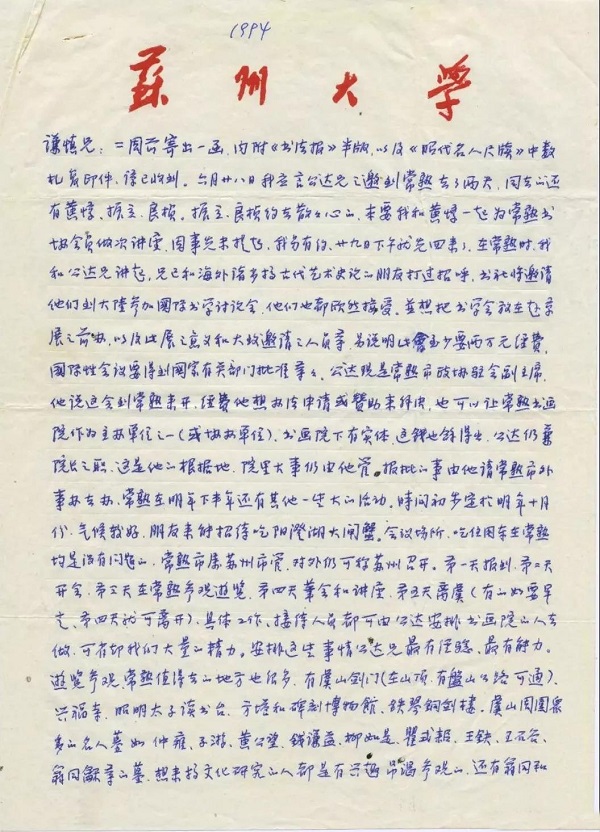 1994
蘇州大学
谦慎兄：二周前寄出一函，内附《书法报》半版，以及《明代名人尺牍》中数
札复印件，谅已收到。六月廿八日我应言公达兄之邀到常熟去了两天，同去的还
有黄惇、振立、民桢。振立、民桢约去散散心的，本要我和黄惇一起为常熟书
协会员做次讲座，因事先未提及，我另有约，廿九日下午就先回来了。在常熟时，我
和公达兄讲起，兄已和海外诸多搞古代艺术史论的朋友打过招呼，书社将邀请
他们到大陆参加国际书学讨论会，他们也都欣然接受。并想把书学会放在赴京
展之前办，以及此展之意义和大致邀请之人员等，另说明此会至少要两万元经费，
国际性会议要得到国家有关部门批准等等。公达现是常熟市政协驻会副主席，
他说这会到常熟来开，经费他想办法申请或赞助来解决，也可以让常熟书画
院作为主办单位之一（或协办单位）。书画院下有实体，这钱也能得出，公达仍兼
院长之职，这是他的根据地，院里大事仍由他管。报批的事由他请常熟市外
事办去办，常熟在明年下半年还有其他一些大的活动。时间初步定于明年十月
份，气候较好，朋友来能招待吃阳澄湖大闸蟹。会议场所、吃住用车在常熟
均是没有问题的，常熟市属苏州市管，对外仍可称苏州召开。第一天报到，第二天
开会，第三天在常熟参观游览，第四天笔会和讲座，第五天离虞（有的如要早
走，第四天就可离开）。具体工作、接待人员都可由公达安排书画院的人去
做，可省却我们大量的精力。安排这些事情公达兄最有经验、最有能力。
游览参观，常熟值得去的地方也很多，有虞山剑门（在山顶，有盘山公路可通）、
兴福寺、昭明太子读书台、方塔和碑刻博物馆、铁琴铜剑楼。虞山周围众
多的名人墓如仲雍、子游、黄公望、钱谦益、柳如是、瞿式耜、王铁、王石谷、
翁同龢等的墓，想来搞文化研究的人都是有兴趣吊谒参观的，还有翁同和